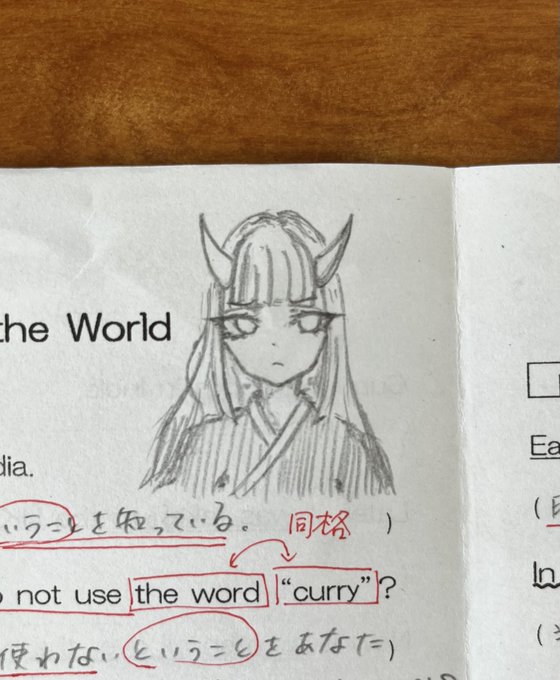 the World
dia.
いうことを知っている。 同格 )
o not use the word "curry"?
使わないということをあなた )
Ea
(
In
(